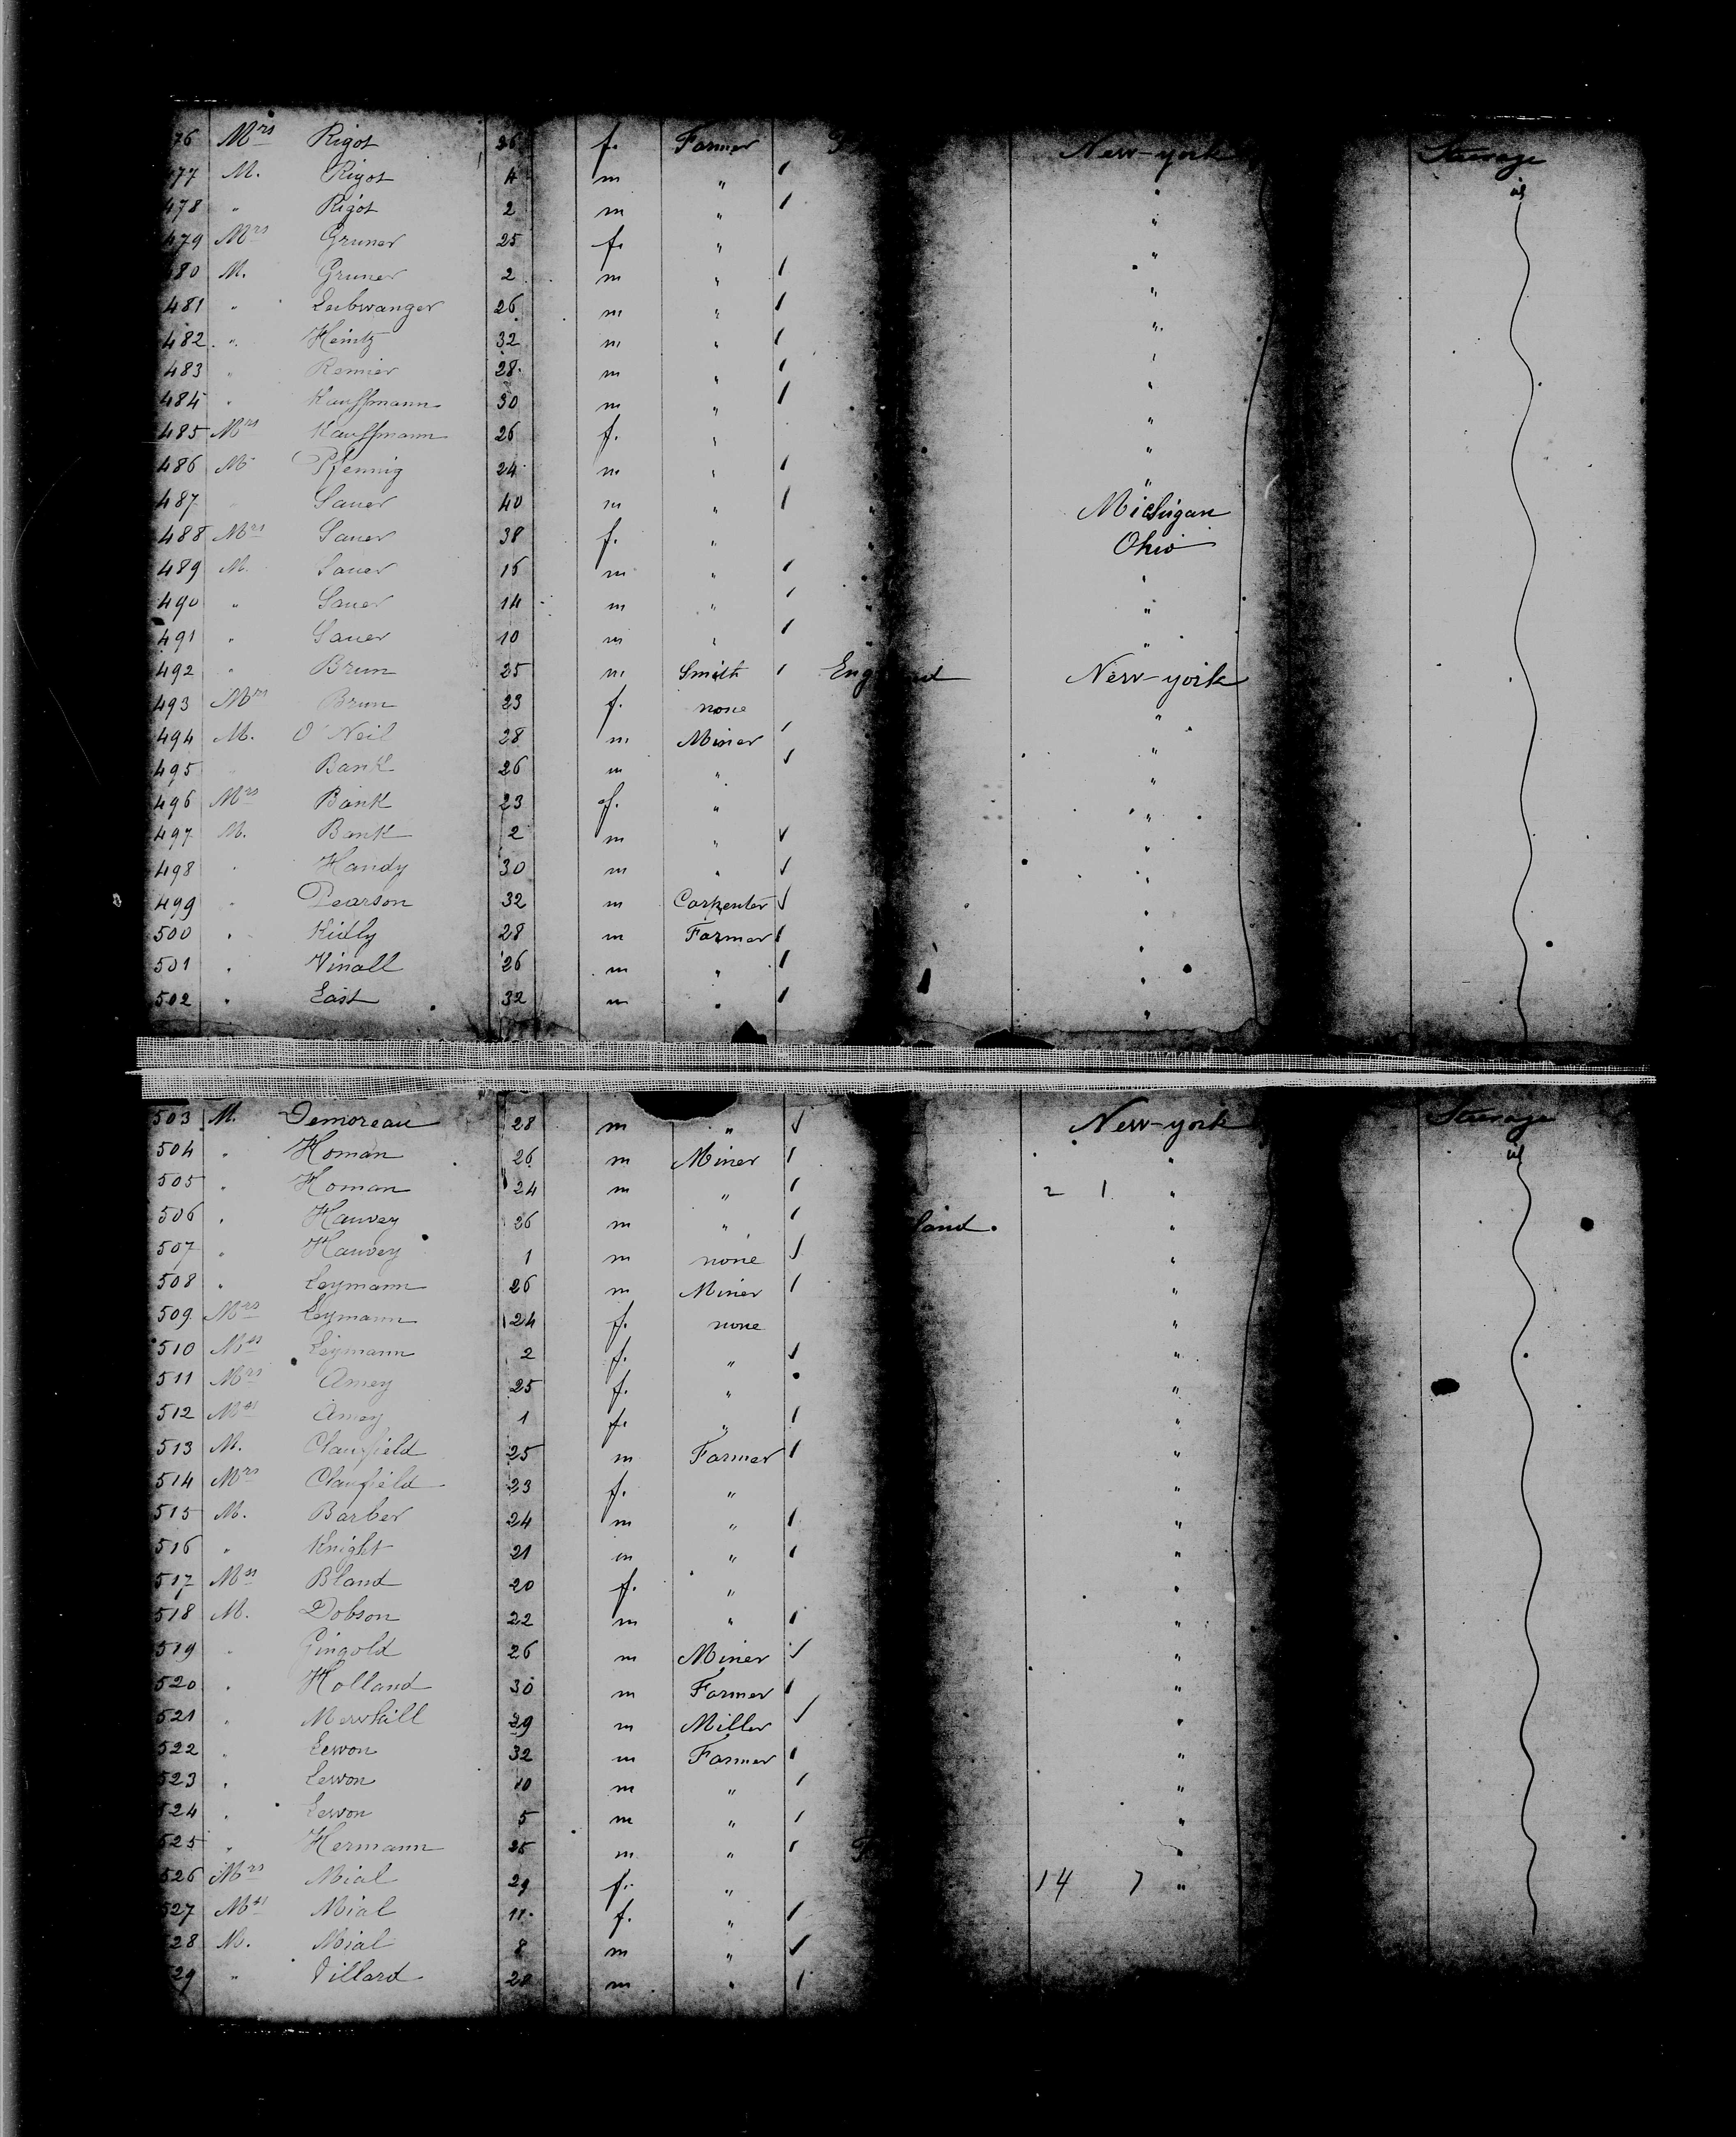 76 Mrs Rigot 26 f. Farmer New-york Steerage
477 M. Rigot 4 m " " id
478 " Rigot 2 m " "
479 Mrs Gruner 25 f. " "
480 M. Gruner 2 m " "
481 " Leibwanger 26 m " "
482 " Heintz 32 m " "
483 " Remier 28 m " "
484 " Kauffmann 30 m " "
485 Mrs Kauffmann 26 f. " "
486 M Pfennig 24 m " "
487 " Sauer 40 m " " Michigan
488 Mrs Sauer 38 f. " " Ohio
489 M. Sauer 16 m " "
490 " Sauer 14 m " " "
491 " Sauer 10 m " " "
492 " Brun 25 m Smith England New-york
493 Mrs Brun 23 f. none "
494 M. O'Neil 28 m Miner "
495 " Bank 26 m " "
496 Mrs Bank 23 f. " "
497 M. Bank 2 m " "
498 " Handy 30 m " "
499 " Pearson 32 m Carpenter "
500 " Kidly 28 m Farmer "
501 " Vinall 26 m " "
502 " East 32 m " "
503 M. Demoreau 28 m " New-york Steerage
504 " Homan 26 m Miner " id
505 " Homan 24 m " 2 1 "
506 " Hauvey 26 m " land. "
507 " Hauvey 1 m none "
508 " Leymann 26 m Miner "
509 Mrs Leymann 24 f. none "
510 Mss Leymann 2 f. " "
511 Mrs Amey 25 f. " "
512 Mss Amey 1 f. " "
513 M. Clanfield 25 m Farmer "
514 Mrs Clanfield 23 f. " "
515 M. Barber 24 m " "
516 " Knight 21 m " "
517 Mss Bland 20 f. " "
518 M. Dobson 22 m " "
519 " Gingold 26 m Miner "
520 " Holland 30 m Farmer "
521 " Mewhill 29 m Miller "
522 " Lewon 32 m Farmer "
523 " Lewon 10 m " "
524 " Lewon 5 m " "
525 " Hermann 25 m " "
526 Mrs Mial 29 f. " 14 7 "
527 Mss Mial 11 f. "
28 M. Mial 8 m "
29 " Villard 20 m "